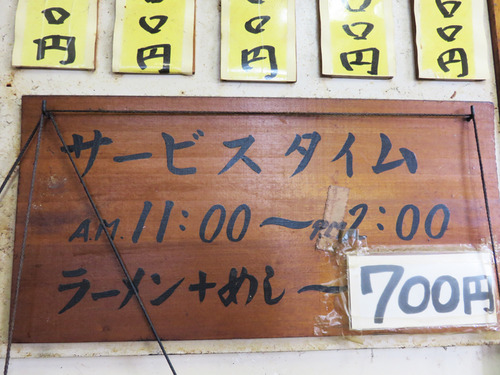 00円 00円 00円 00円 00円
サービスタイム
A.M. 11:00〜P.M 2:00
ラーメン+めし〜700円